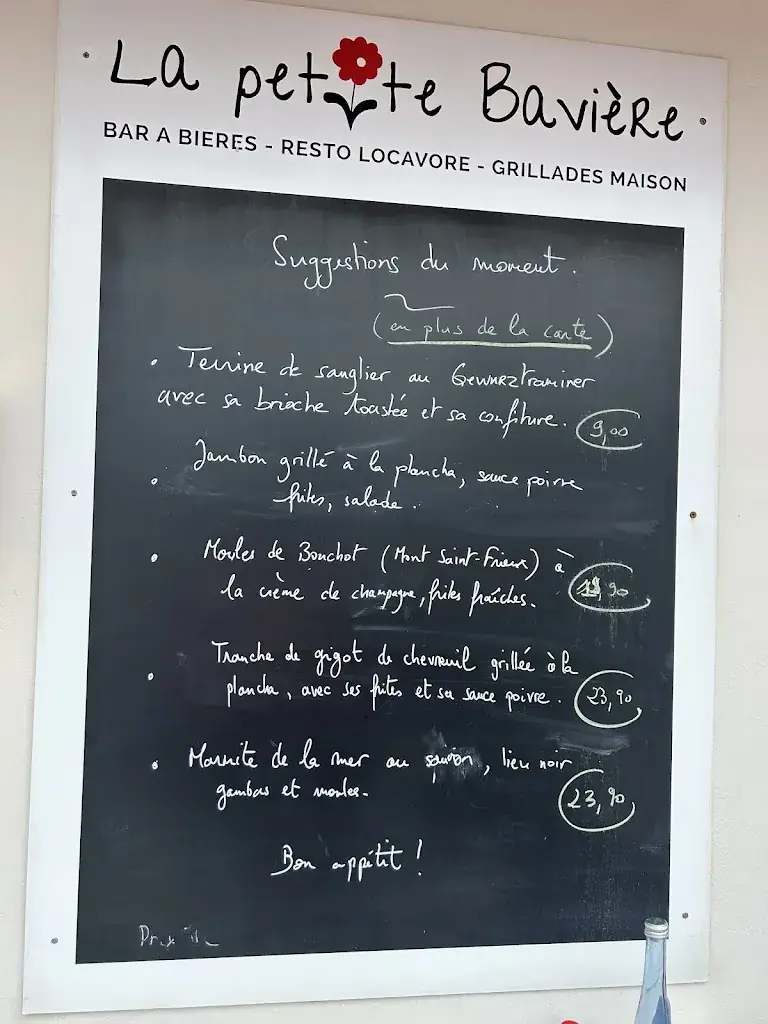 La petite Bavière
BAR A BIERES - RESTO LOCAVORE - GRILLADES MAISON
Suggestions du moment.
(en plus de la carte)
• Terrine de sanglier au Gewurztraminer
avec sa brioche toastée et sa confiture. 9,00
• Jambon grillé à la plancha, sauce poivre
frites, salade.
• Moules de Bouchot (Mont Saint-Frieux) à
la crème de champagne, frites fraîches. ,90
• Tranche de gigot de chevreuil grillée à la
plancha, avec ses frites et sa sauce poivre. 23,90
• Marmite de la mer au, lieu noir
gambas et moules. 23,90
Bon appétit !